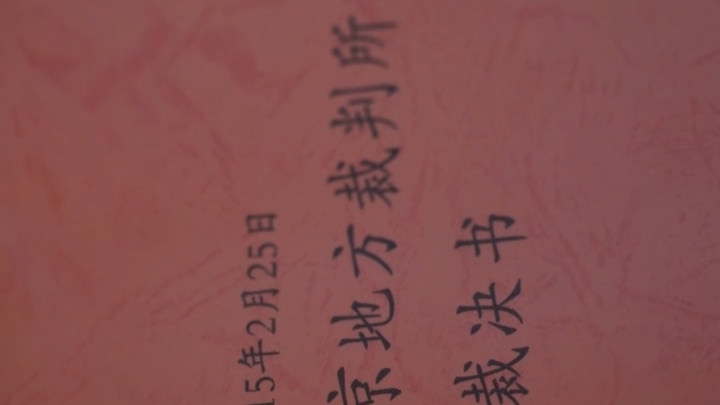 15年2月25日
京地方裁判所
裁决书